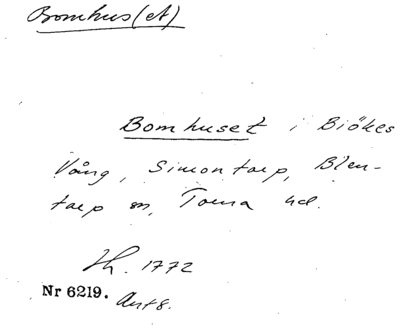 Bomhus(et)
Bomhuset i Biökes
Vång, Simontorp, Blen-
torp sn, Torna hd.
Hh. 1772
Nr 6219. Ant 8.